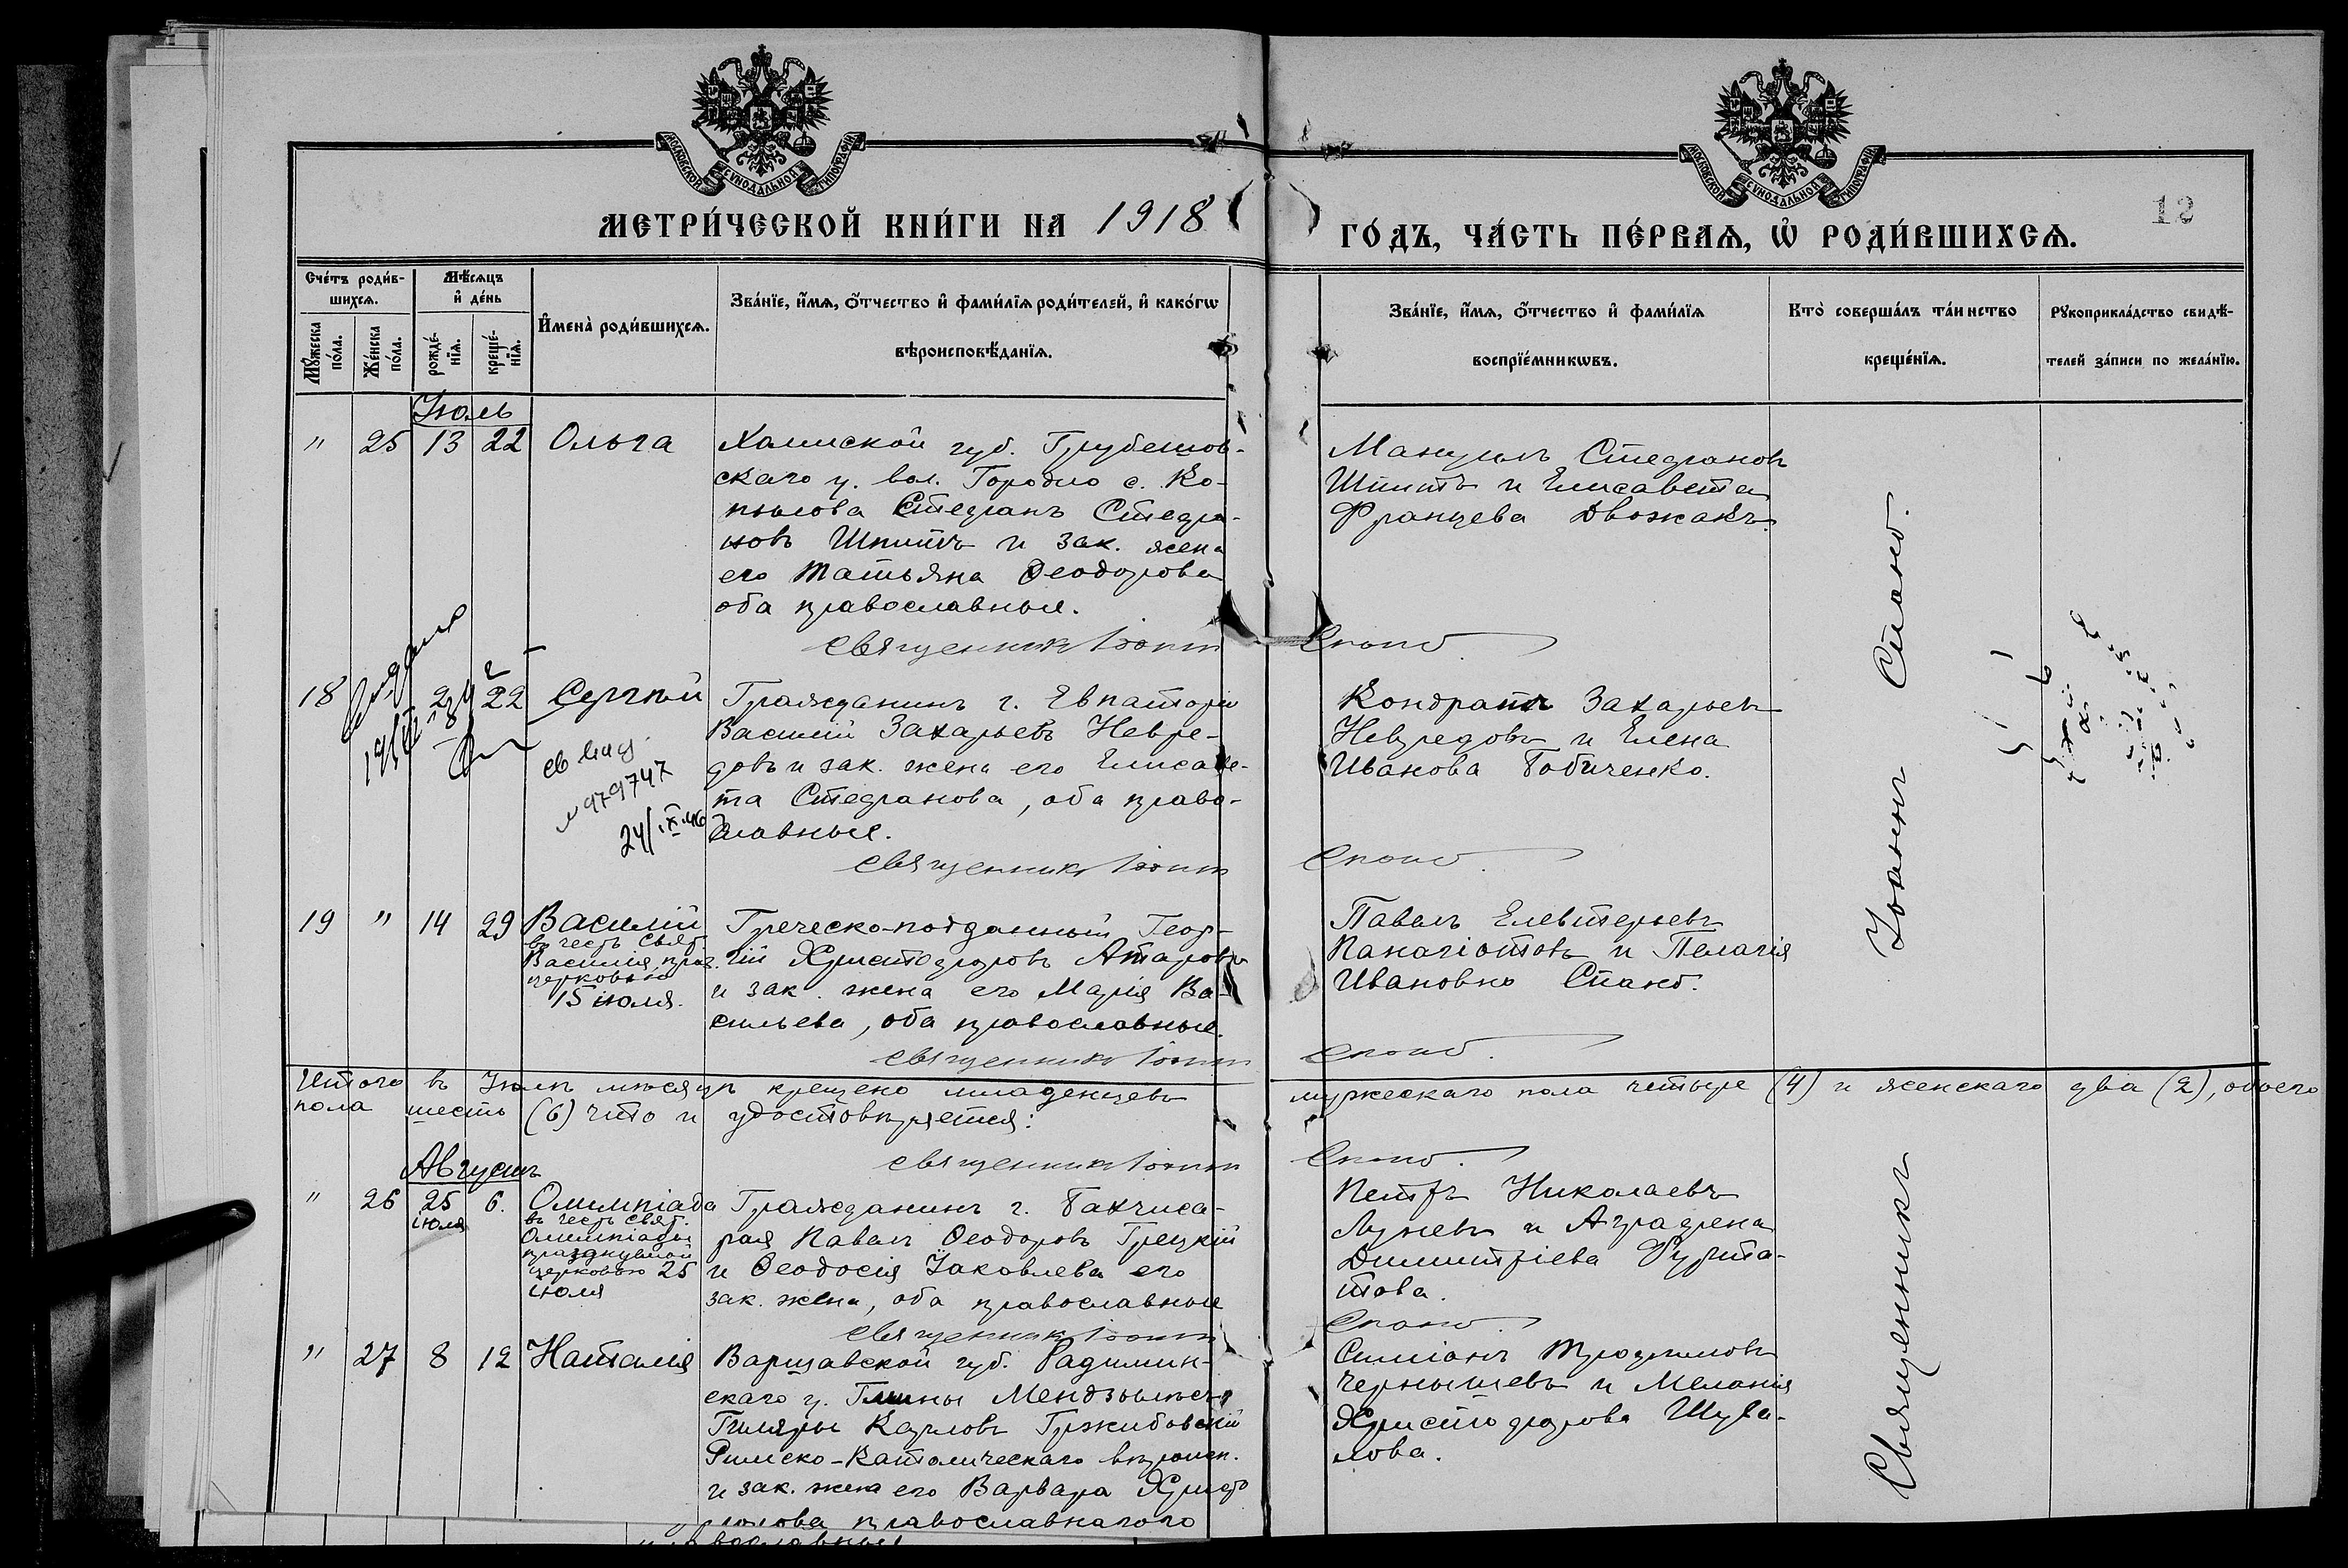 МОСКОВСКОЙ СѴНОДАЛЬНОЙ ТИПОГРАФІИ
МОСКОВСКОЙ СѴНОДАЛЬНОЙ ТИПОГРАФІИ
12
МЕТРИ́ЧЕСКОЙ КНИ́ГИ НА 1918
ГО́ДЪ, ЧА́СТЬ ПЕ́РВАѦ, Ѡ҆ РОДИ́ВШИХСѦ.
Сче́тъ роди́в-
шихсѧ.
Мꙋ́жеска по́ла.
Же́нска по́ла.
Мѣ́сѧцъ
и҆ де́нь
рожде́-нїѧ.
креще́-нїѧ.
И҆мена̀ роди́вшихсѧ.
Зва́нїе, и҆́мѧ, ѻ҆́тчество и҆ фами́лїѧ роди́телей, и҆ како́гѡ
вѣроисповѣ́данїѧ.
Зва́нїе, и҆́мѧ, ѻ҆́тчество и҆ фами́лїѧ
воспрїе́мникѡвъ.
Кто̀ соверша́лъ та́инство
креще́нїѧ.
Рꙋкоприкла́дство свидѣ́-
телей за́писи по жела́нїю.
Іюль
" 25 13 22 Ольга
Холмской губ. Грубешов-
скаго у. вол. Городло с. Ко-
пылова Стефанъ Стефа-
новъ Шпитъ и зак. жена
его Татьяна Ѳеодорова
оба православные.
Священникъ Іоаннъ Спано.
Мануилъ Стефановъ
Шпитъ и Елисавета
Францева Двожакъ.
18 24 22 Сергѣй
Выдана
св
№ 979747
24/IX.46
Гражданинъ г. Евпаторіи
Василій Захарьевъ Невре-
довъ и зак. жена его Елисаве-
та Стефанова, оба право-
славные.
Священникъ Іоаннъ Спано.
Кондратъ Захарьев
Невредовъ и Елена
Иванова Бобиченко.
19 " 14 29 Василій
въ честь свят.
Василія праз.
церковью
15 іюля.
Греческо-подданный Геор-
гій Христофоровъ Атаровъ
и зак. жена его Марія Ва-
сильева, оба православные.
Священникъ Іоаннъ Спано.
Павелъ Елевтерьевъ
Панагіотовъ и Пелагія
Ивановна Спано.
Итого въ Іюлѣ мѣсяцѣ крещено младенцевъ мужескаго пола четыре (4) и женскаго два (2), обоего
пола шесть (6) что и удостовѣряется:
Священникъ Іоаннъ Спано.
Августъ
" 26 25 іюля 6. Олимпіада
въ честь свят.
Олимпіады
празднуемой
церковью 25
іюля
Гражданинъ г. Бахчиса-
рая Павелъ Ѳеодоровъ Грецкій
и Ѳеодосія Іаковлева его
зак. жена, оба православные
Священникъ Іоаннъ Спано.
Петръ Николаевъ
Лужевъ и Аграфена
Димитріева Фурта-
това.
" 27 8 12 Наталія
Варшавской губ. Радимин-
скаго у. Гмины
Гиляры Карловъ Гржибовскій
Римско-Католическаго вѣроисп.
и зак. жена его Варвара Христо
форова православнагого
Симеонъ Трофимовъ
Чернышевъ и Меланія
Христофорова Шува-
лова.
Священникъ Іоаннъ Спано.